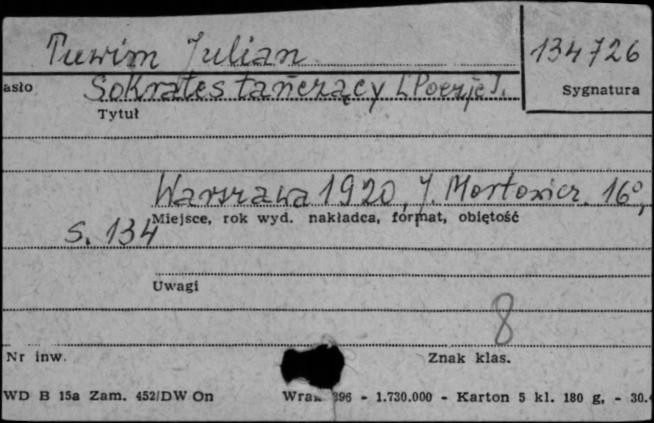 Tuwim Julian
134726
asło
Sokrates tańczący [Poezje].
Sygnatura
Tytuł
Warszawa 1920, J. Mortkowicz. 16°,
Miejsce, rok wyd. nakładca, format, objętość
s. 134
Uwagi
8
Nr inw.
Znak klas.
WD B 15a Zam. 452/DW On
396 - 1.730.000 - Karton 5 kl. 180 g. - 30.